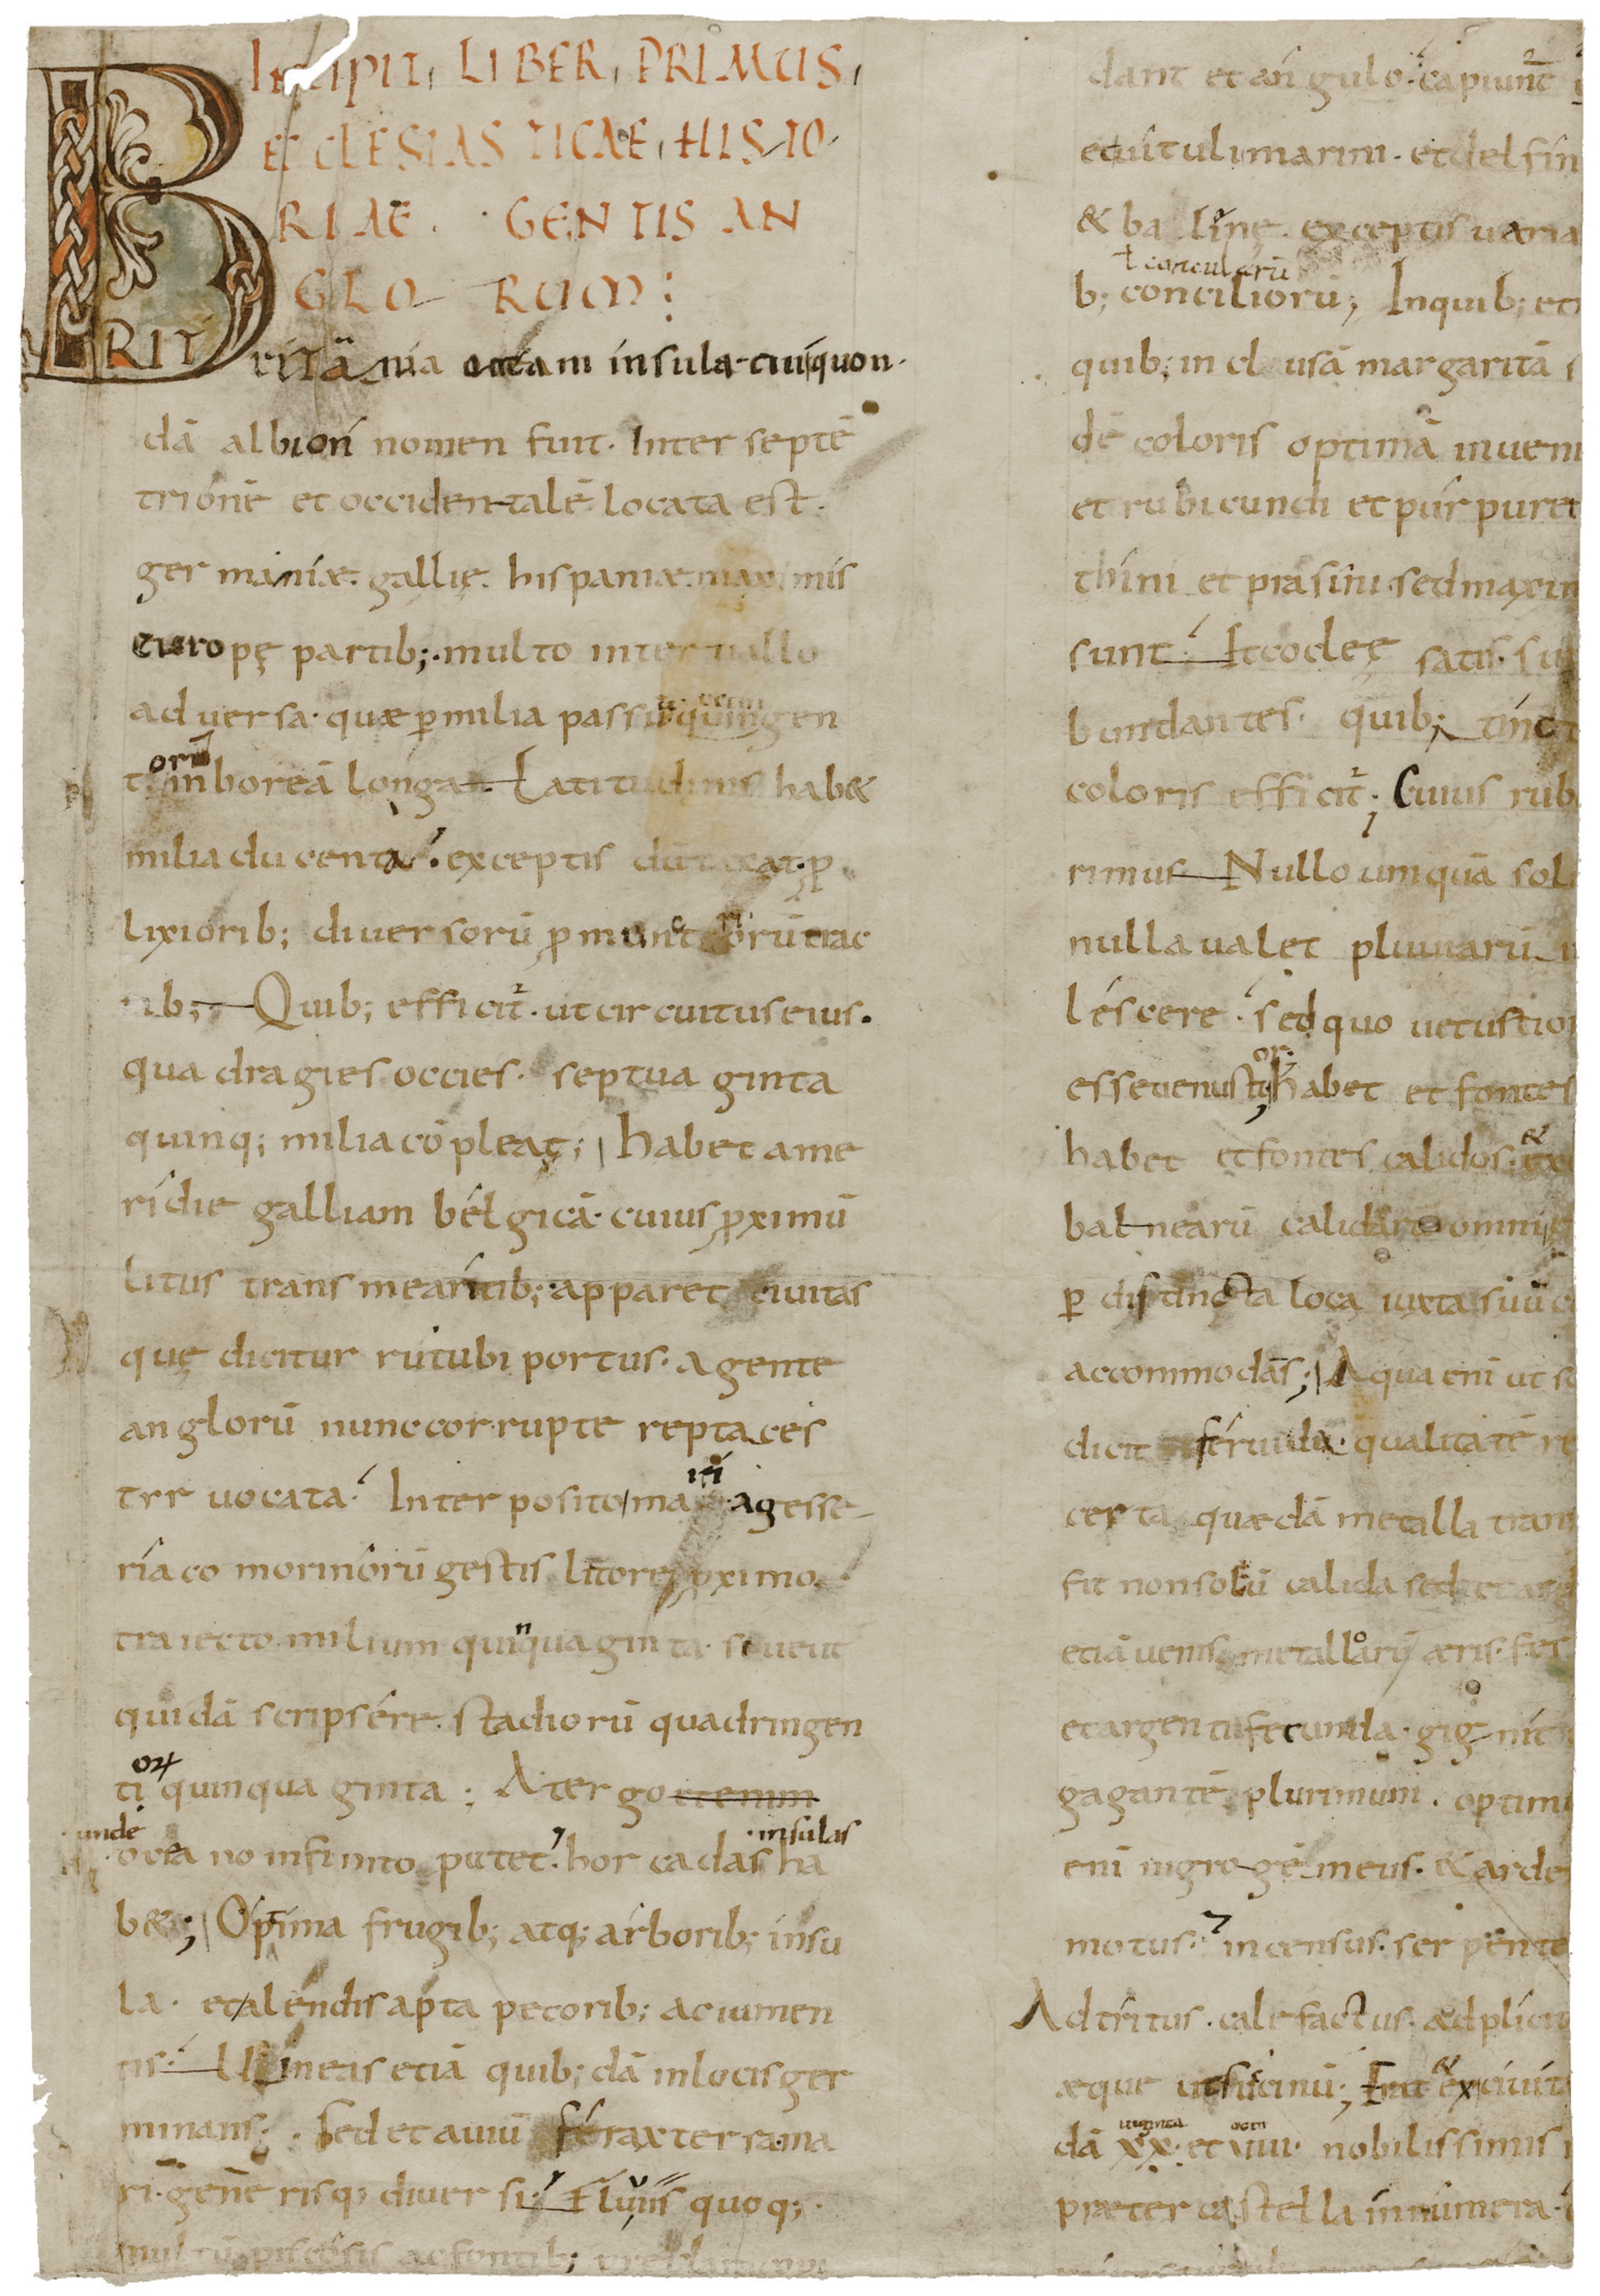 Incipit LIBER PRIMUS
ECCLESIASTICAE HISTO
RIAE GENTIS AN
GLO RUM:
BRIT
ritānia oceani insula cui quon
dā albion nomen fuit. Inter septē
trionē et occidentalē locata est.
germaniæ. gallię. hispaniæ. maximis
europę partib; multo interuallo
aduersa. quæ p milia passuū quingen
octin
t in boreā longa. Latitudinis hab&
orū
milia ducenta. exceptis dūtaxat p
lixiorib; diuersorū promuntoriorū trac
tib; Quib; efficit. ut circuitus eius.
quadragies occies. septuaginta
quinq; milia cōpleat; habet a me
ridie galliam bélgicā. cuius proximū
litus transmeantib; apparet ciuitas
quę dicitur rutubi portus. a gente
anglorū nunc corrupte reptaces
tír uocata. Interposito mari a gesse
riaco morinorū gestis litore proximo.
traiecto milium quinquaginta. siue ut
quidā scripsére. stadiorū quadringen
ti quinquaginta: A tergo et enim
unde insulas
ocea no infinito patet. horcadas ha
b&; Opima frugib; atq; arborib; insu
la. et alendis apta pecorib; ac iumen
tis. Uineas etiā quib;dā in locis ger
minans. Sed et auiū férax terra ma
ri. generisq; diuersi. Fluuiis quoq;
multū piscosis ac fontib;
dant et angulo. capiunt
et uituli marini. et delfin
& ballinę. exceptis uaria
ł concularū
b; conciliorū; In quib; et
quib; inclusā margaritā
dē coloris optimā inueni
et rubicundi et purpurei
thini et prasini. sed maxim
sunt. Et cocleę satis su
bundantes. quib; tinct
coloris efficit; Cuius rub
rimus Nullo umquā sol
nulla ualet pluuiarū
léscere. sed quo uetustior
or
esse uenusti; habet et fontes
habet et fontes calidos. & ex
balnearū calidarū omni
p distincta loca iuxta suū
accommodās; Aqua enī ut
dicit féruidā qualitatē re
certa quædā metalla trans
fit non solū calida sed et ard
etiā uenis metallorū æris. fer
et argenti fecunda. gignit
gagantē plurimum. optimi
enī nigro gēmeus. & arde
motus. incensus. serpente
Adtritus. calefactus. adplicit
æque ut sucinū; Erat & ex ciuit
uiginta octo
dā XX. et uiii. nobilissimis
præter castella innumera.